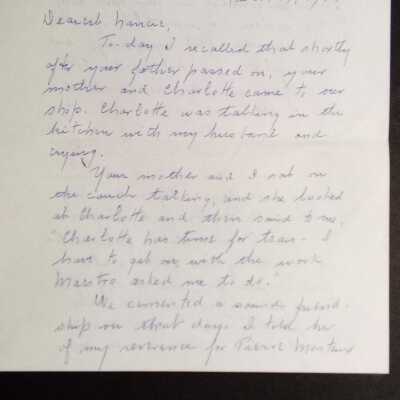 Dearest
To-day I recalled that shortly
after your father passed on, your
mother and Charlotte came to our
ship. Charlotte was talking in the
kitchen with my husband and
crying.
Your mother and I sat on
the couch talking, and she looked
at Charlotte and then said to me,
"Charlotte has time for tears - I
have to get on with the work
Maestro asked me to do."
We cemented a sound friend-
ship on that day. I told her
of my reverence for Pierre Monteux